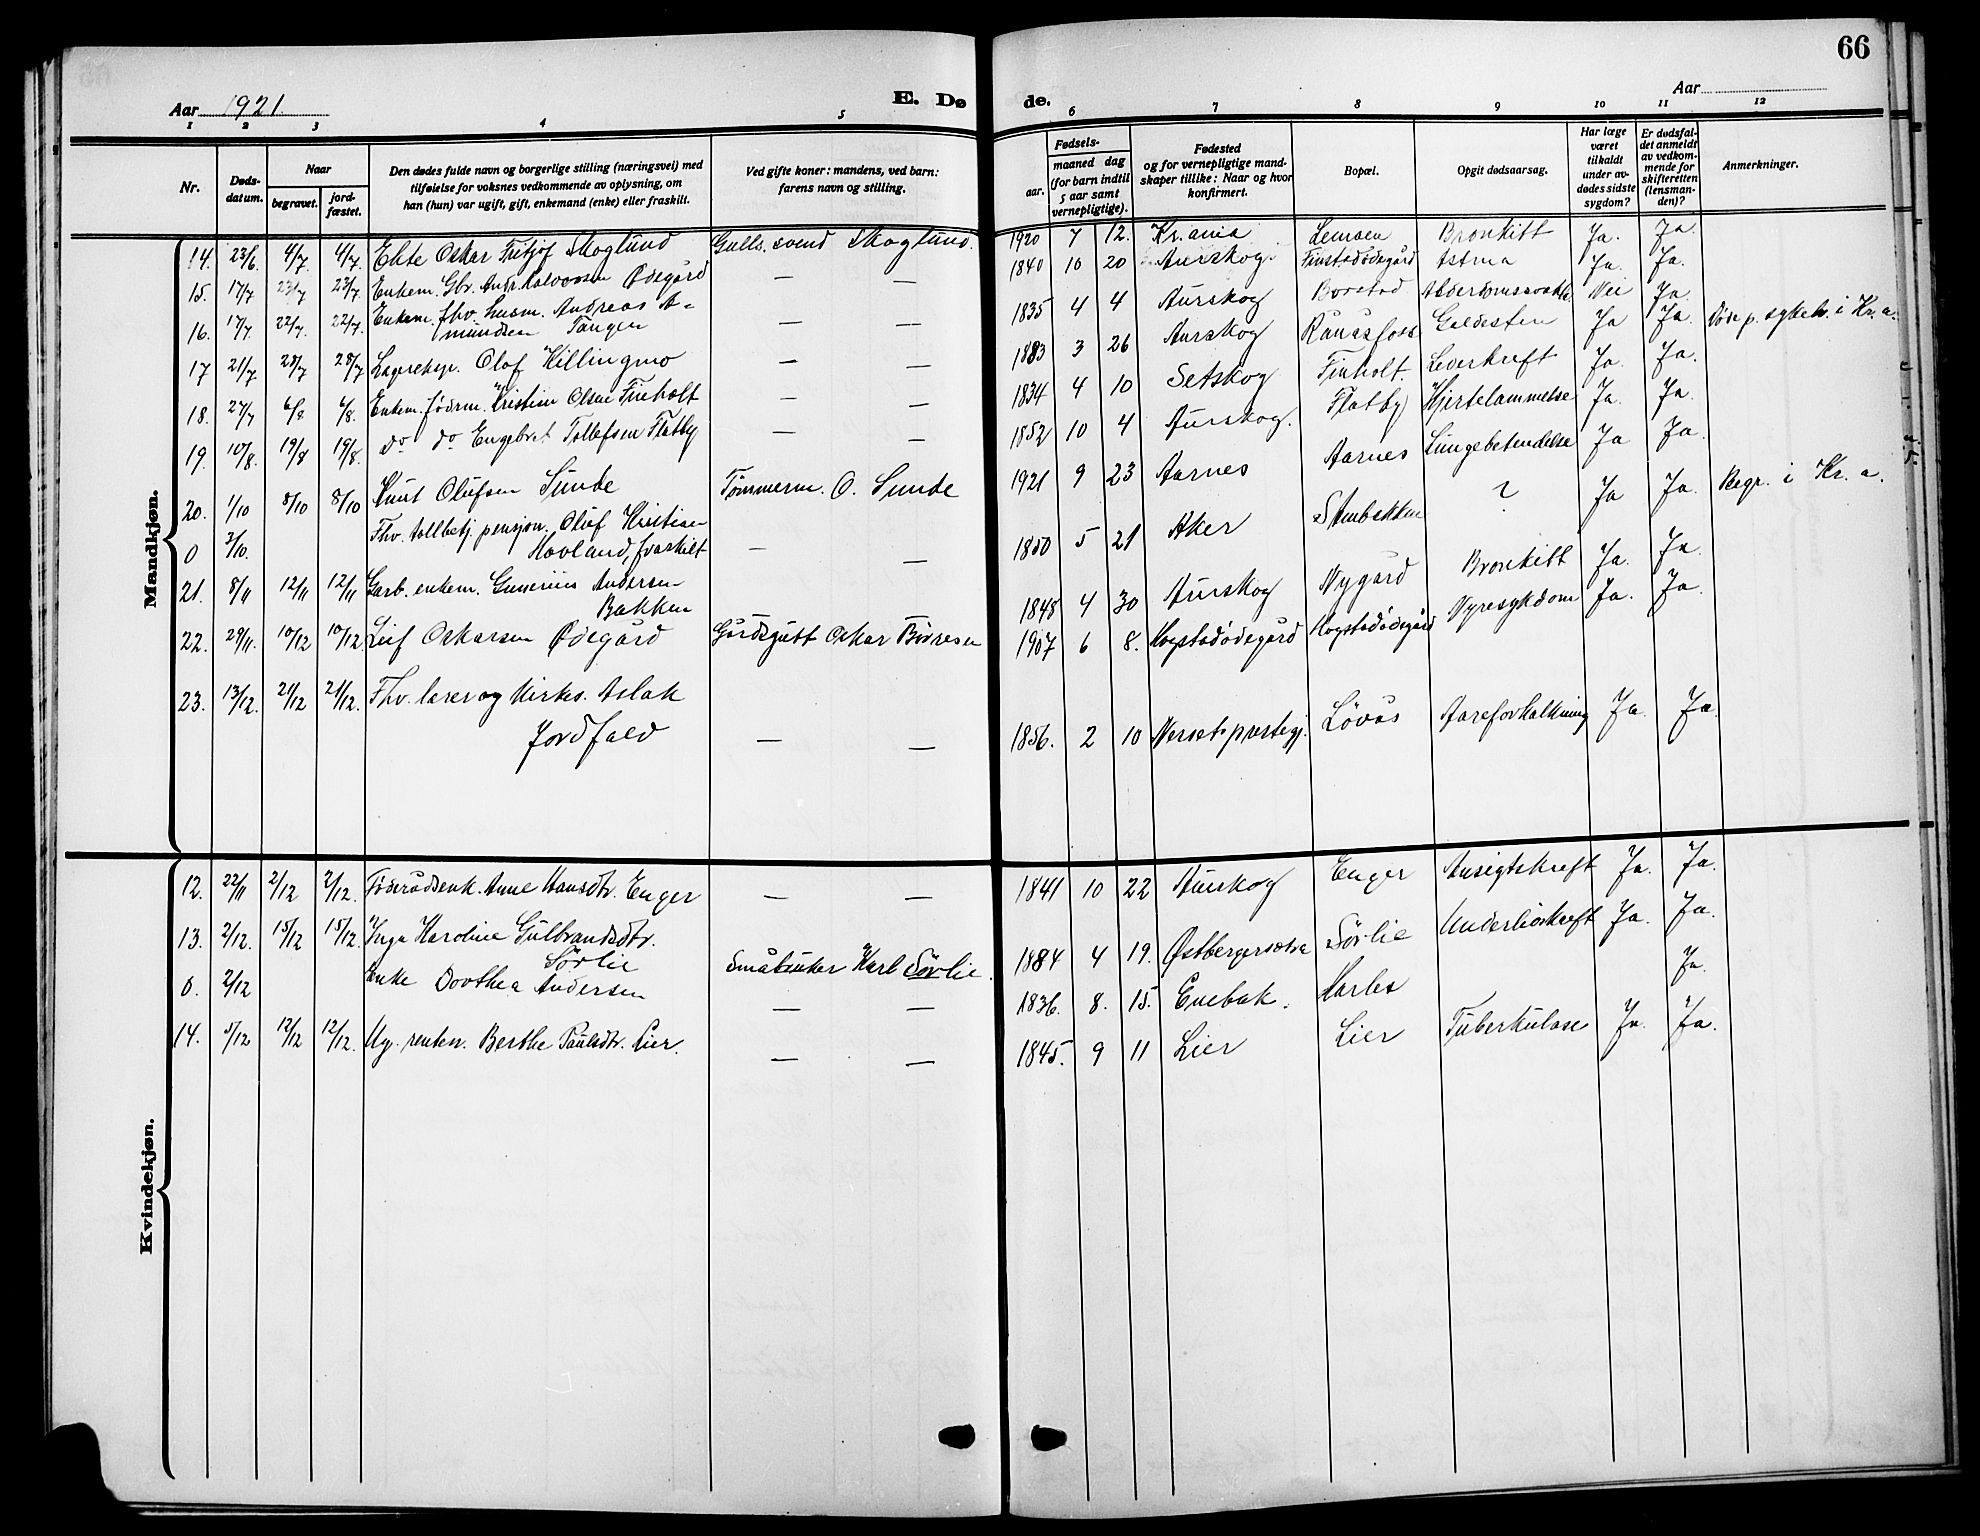 66
Aar 1921.
E. Dø
de.
Aar
1 2 3 4 5
6 7 8 9 10 11 12
Nr.
Døds-
datum.
Naar
begravet.
jord-
fæstet.
Den dødes fulde navn og borgerlige stilling (næringsvei) med
tilføielse for voksnes vedkommende av oplysning, om
han (hun) var ugift, gift, enkemand (enke) eller fraskilt.
Ved gifte koner: mandens, ved barn:
farens navn og stilling.
Fødsels-
aar.
maaned dag
(for barn indtil
5 aar samt
vernepligtige).
Fødested
og for vernepligtige mand-
skaper tillike: Naar og hvor
konfirmert.
Bopæl.
Opgit dødsaarsag.
Har læge
været
tilkaldt
under av-
dødes sidste
sygdom?
Er dødsfal-
det anmeldt
av vedkom-
mende for
skifteretten
(lensman-
den)?
Anmerkninger.
Mandkjøn.
14. 23/6. 4/7. 4/7. Ekte Oskar Fritjof Skoglund Gulls. svend Skoglund. 1920 7 12. Kr.ania Lemoen Bronkitt Ja. Ja.
15. 17/7 23/7 23/7 Enkem. Gbr. Andr. Halvorsen Ødegård — — 1840 10 20 Aurskog. Finstadødegård Astma Ja. Ja.
16. 17/7. 22/7. 22/7. Enkem. fhv. husm. Andreas A-
mundsen Tangen — — 1835 4 4 Aurskog Borstad Alderdomssvakh. Nei Ja.
17 21/7 28/7 28/7 Lagereksp. Olof Killingmo — — 1883 3 26 Aurskog Rånåsfoss Galdesten Ja Ja. Døde p. sykeh. i Kr.a.
18. 27/7 6/8 6/8. Enkem. føderm. Kristian Olsen Finholt — — 1834 4 10 Setskog Finholt. Leverkreft Ja. Ja.
19. 10/8. 19/8 19/8. do do Engebret Tollefsen Flatby — — 1852 10 4 Aurskog. Flatby Hjertelammelse Ja. Ja.
20. 1/10 8/10 8/10 Knut Olufsen Sunde Tømmerm. O. Sunde 1921 9 23 Aarnes Aarnes Lungebetendelse Ja Ja.
0 3/10. Fhv. tollbetj. pensjon. Oluf Kristian
Hovland, fraskilt — — 1850 5 21 Aker Stenbekken ? Ja Ja. Begr. i Kr.a.
21. 8/11 12/11 12/11 Garb. enkem. Gunerius Andersen
Bakken — 1848 4 30 Aurskog Nygård Bronkitt Ja. Ja.
22. 29/11. 10/12 10/12 Leif Oskarsen Ødegård Gårdsgutt Oskar Børresen 1907 6 8. Hogstadødegård Hogstadødegård Nyresykdom Ja. Ja.
23. 13/12. 21/12 21/12. Fhv. lærer og kirkes. Aslak
Jordfald — — 1856. 2 10 Nerset prestegj. Løvås Aareforkalkning Ja. Ja.
Kvindekjøn.
12. 22/11 2/12 2/12. Føderådsenk. Anne Hansdtr. Enger — — 1841 10 22 Aurskog Enger Ansigtskreft Ja. Ja.
13. 2/12. 15/12 15/12. Inga Karoline Gulbrandsdtr.
Sørlie Småbruker Karl Sørlie. 1884 4 19. Østbergersetra Sørlie Underlivskreft Ja. Ja.
0. 2/12 Enke Dorthea Andersen — — 1836. 8. 15. Enebak. Harles Ja.
14. 5/12 12/12 12/12. Ug. renten. Berthe Paulsdtr. Lier. — — 1845. 9 11 Lier Lier Tuberkulose Ja. Ja.